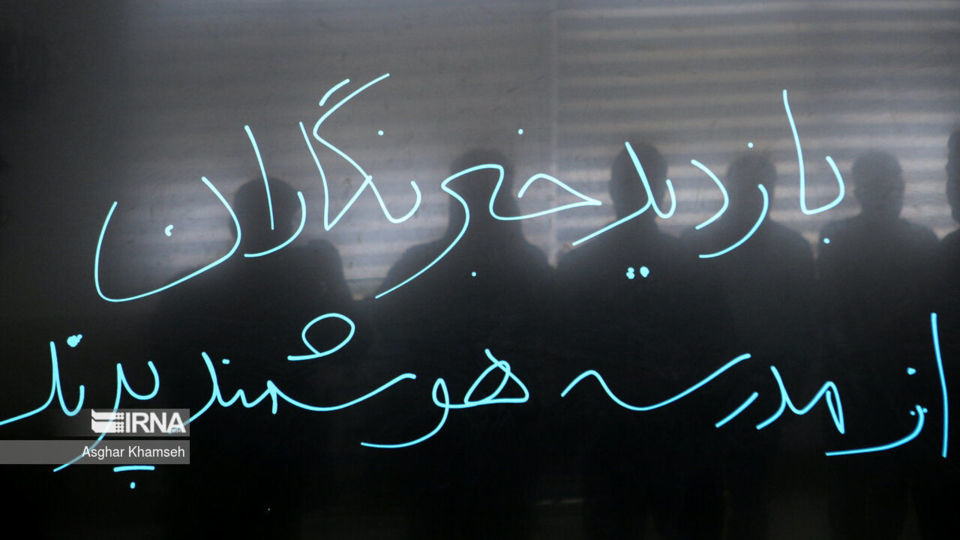 بازدید خبرنگاران
از مدرسه هوشمند پرند
IRNA
Asghar Khamseh